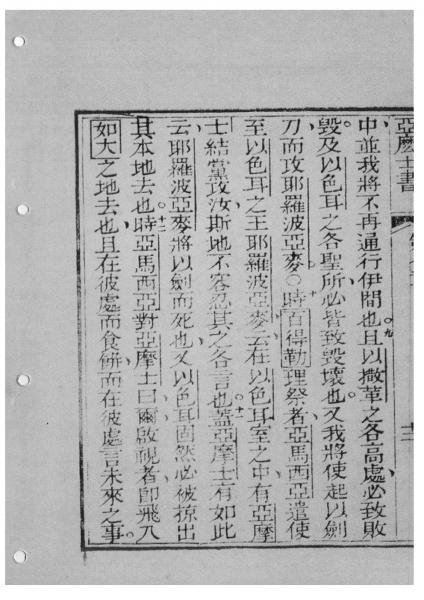 亞麽士書
中並我將不再通行伊間也九且以撒革之各高處必致敗
毀及以色耳之各聖所必皆致毀壞也又我將使起以劍
刀而攻耶羅波亞麥○十時百得勒理祭者亞馬西亞遣使
至以色耳之王耶羅波亞麥云在以色耳室之中有亞摩
士結黨攻汝斯地不容忍其之各言也十一蓋亞摩士有如此
云耶羅波亞麥將以劍而死也又以色耳固然必被掠出
其本地去也十二時亞馬西亞對亞摩士曰爾啟視者卽飛入
如大之地去也且在彼處而食餅而在彼處言未來之事